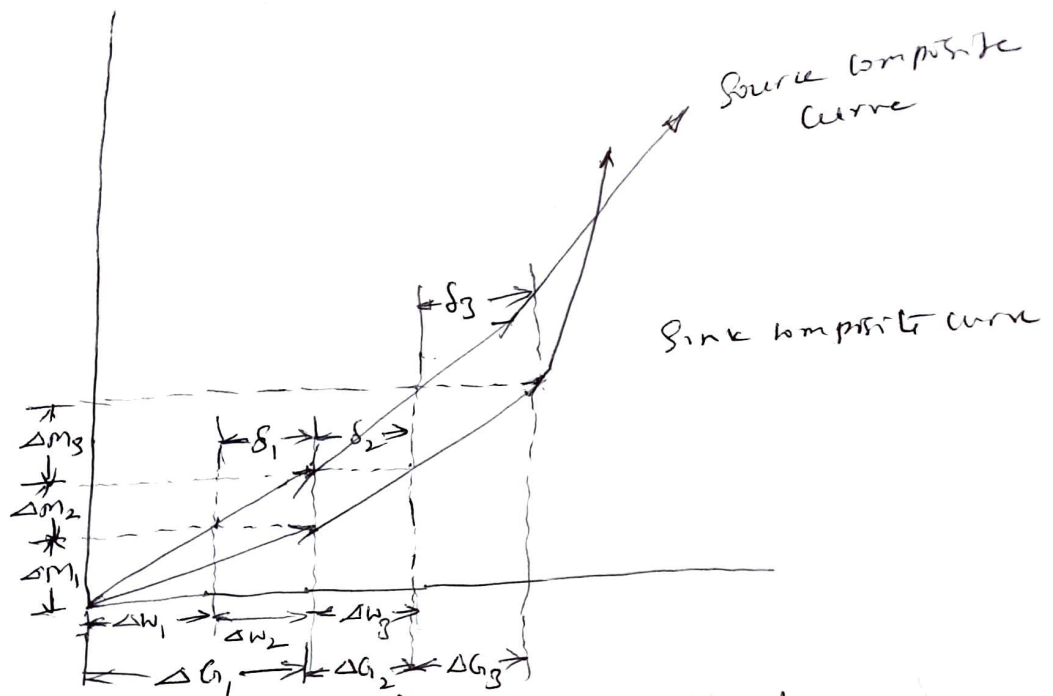 Source composite
curve
δ3
Sink composite curve
ΔM3
δ1 δ2
ΔM2
ΔM1
ΔW1 ΔW2 ΔW3
ΔG1 ΔG2 ΔG3